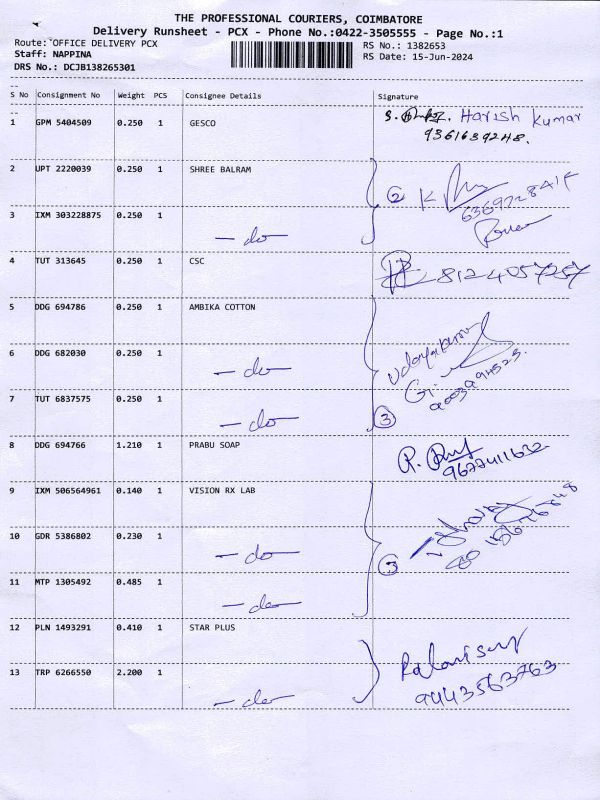 THE PROFESSIONAL COURIERS, COIMBATORE
Delivery Runsheet - PCX - Phone No.:0422-3505555 - Page No.:1
Route: OFFICE DELIVERY PCX
RS No.: 1382653
Staff: NAPPINA
RS Date: 15-Jun-2024
DRS No.: DCJB138265301
S No Consignment No Weight PCS Consignee Details Signature
1 GPM 5404509 0.250 1 GESCO Harish Kumar
9361639248.
2 UPT 2220039 0.250 1 SHREE BALRAM
3 IXM 303228875 0.250 1 - do -
4 TUT 313645 0.250 1 CSC 8124057267
5 DDG 694786 0.250 1 AMBIKA COTTON
6 DDG 682030 0.250 1 - do -
7 TUT 6837575 0.250 1 - do - 3
8 DDG 694766 1.210 1 PRABU SOAP
9677411632
9 IXM 506564961 0.140 1 VISION RX LAB
10 GDR 5386802 0.230 1 - do - 3
11 MTP 1305492 0.485 1 - do -
12 PLN 1493291 0.410 1 STAR PLUS
13 TRP 6266550 2.200 1 - do - 9443563763